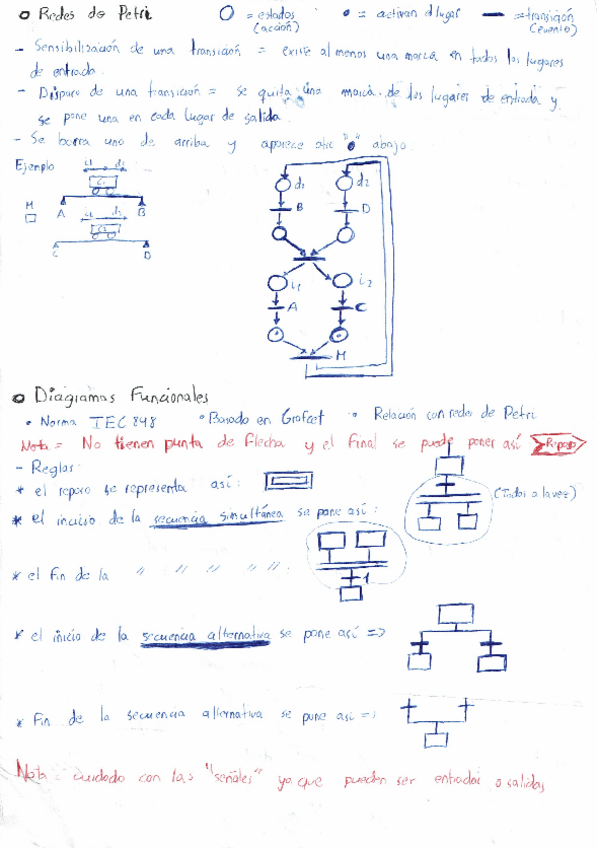 o Redes de Petri   O = estados (acción)   • = activan el lugar   — = transición (evento)
- Sensibilización de una transición = existe al menos una marca en todos los lugares
de entrada.
- Disparo de una transición = se quita una marca de los lugares de entrada y
se pone una en cada lugar de salida.
- Se borra uno de arriba y aparece otro "•" abajo
Ejemplo
i1 d1
C1
M
A B
i2 d2
C2
C D
d1 d2
B D
i1 i2
A C
M
o Diagramas Funcionales
• Norma IEC 848 • Basado en Grafcet • Relación con redes de Petri
Nota = No tienen punta de flecha y el final se puede poner así Reposo
- Reglas:
* el reposo se representa así:
(Todos a la vez)
* el inicio de la secuencia simultánea se pone así:
* el fin de la " " " " ".
1
* el inicio de la secuencia alternativa se pone así =>
* Fin de la secuencia alternativa se pone así =>
Nota = cuidado con las "señales" ya que pueden ser entradas o salidas